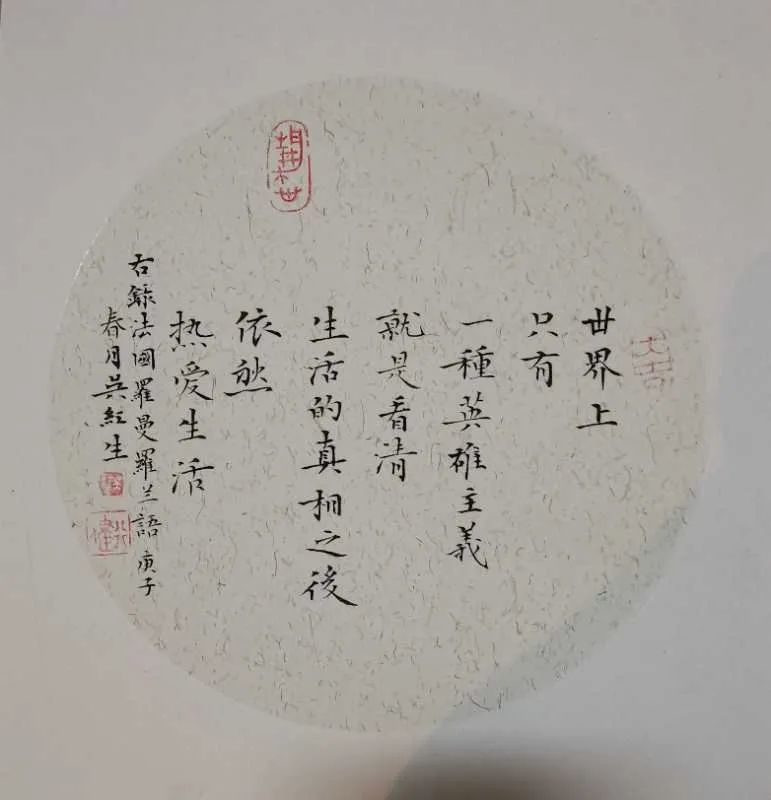 世界上
只有
一種英雄主義
就是看清
生活的真相之後
依然
热爱生活
右錄法國羅曼羅兰語 庚子
春月吴紅生
大吉